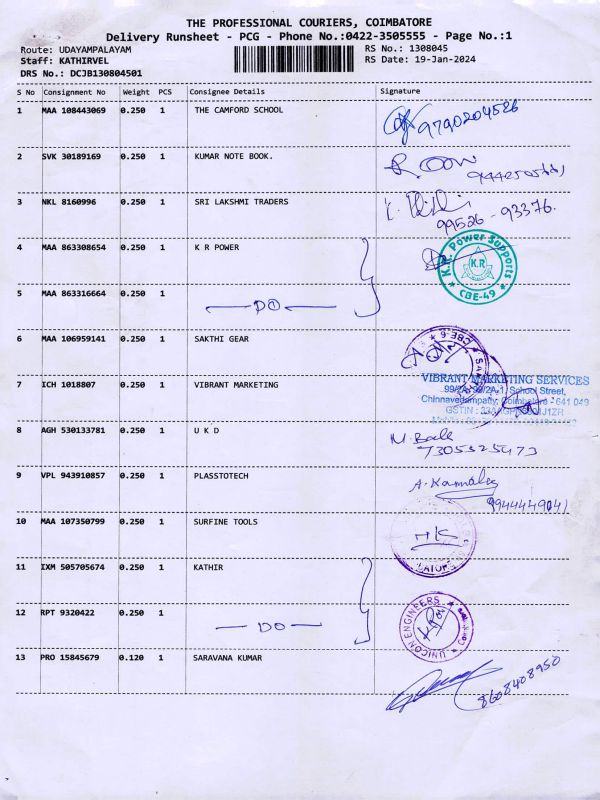 THE PROFESSIONAL COURIERS, COIMBATORE
Delivery Runsheet - PCG - Phone No.:0422-3505555 - Page No.:1
Route: UDAYAMPALAYAM RS No.: 1308045
Staff: KATHIRVEL RS Date: 19-Jan-2024
DRS No.: DCJB130804501
S No Consignment No Weight PCS Consignee Details Signature
1 MAA 108443069 0.250 1 THE CAMFORD SCHOOL 9790204526
2 SVK 30189169 0.250 1 KUMAR NOTE BOOK.
3 NKL 8160996 0.250 1 SRI LAKSHMI TRADERS 99526-93376.
4 MAA 863308654 0.250 1 K R POWER K.R. Power Supports K.R CBE-49
5 MAA 863316664 0.250 1 DO
6 MAA 106959141 0.250 1 SAKTHI GEAR
7 ICH 1018807 0.250 1 VIBRANT MARKETING VIBRANT MARKETING SERVICES
School Street,
Chinnavedampatty, Coimbatore - 641 049
GSTIN :
8 AGH 530133781 0.250 1 U K D M. Bala
7305525473
9 VPL 943910857 0.250 1 PLASSTOTECH A. Kannales
9944449041
10 MAA 107350799 0.250 1 SURFINE TOOLS
11 IXM 505705674 0.250 1 KATHIR
12 RPT 9320422 0.250 1 DO UNICON ENGINEERS
13 PRO 15845679 0.120 1 SARAVANA KUMAR 8608408950